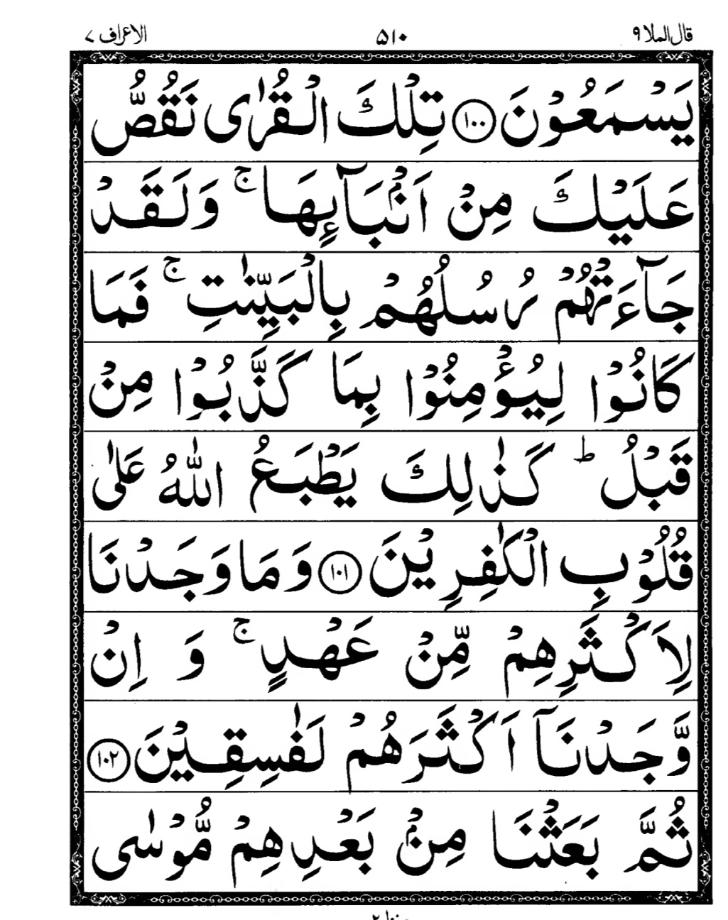 قال الملا ۹ ۵۱۰ الاعراف ۷
يَسْمَعُوْنَ ﴿۱۰۰﴾ تِلْكَ الْقُرٰى نَقُصُّ
عَلَيْكَ مِنْ اَنْۢبَآىِٕهَا ۚ وَلَقَدْ
جَآءَتْهُمْ رُسُلُهُمْ بِالْبَيِّنٰتِ ۚ فَمَا
كَانُوْا لِيُؤْمِنُوْا بِمَا كَذَّبُوْا مِنْ
قَبْلُ ؕ كَذٰلِكَ يَطْبَعُ اللّٰهُ عَلٰى
قُلُوْبِ الْكٰفِرِيْنَ ﴿۱۰۱﴾ وَمَا وَجَدْنَا
لِاَكْثَرِهِمْ مِّنْ عَهْدٍ ۚ وَ اِنْ
وَّجَدْنَاۤ اَكْثَرَهُمْ لَفٰسِقِيْنَ ﴿۱۰۲﴾
ثُمَّ بَعَثْنَا مِنْۢ بَعْدِهِمْ مُّوْسٰى